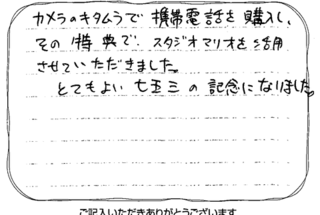 カメラのキタムラで携帯電話を購入し、
その特典で、スタジオマリオを活用
させていただきました。
とてもよい七五三の記念になりました。
ご記入いただきありがとうございます